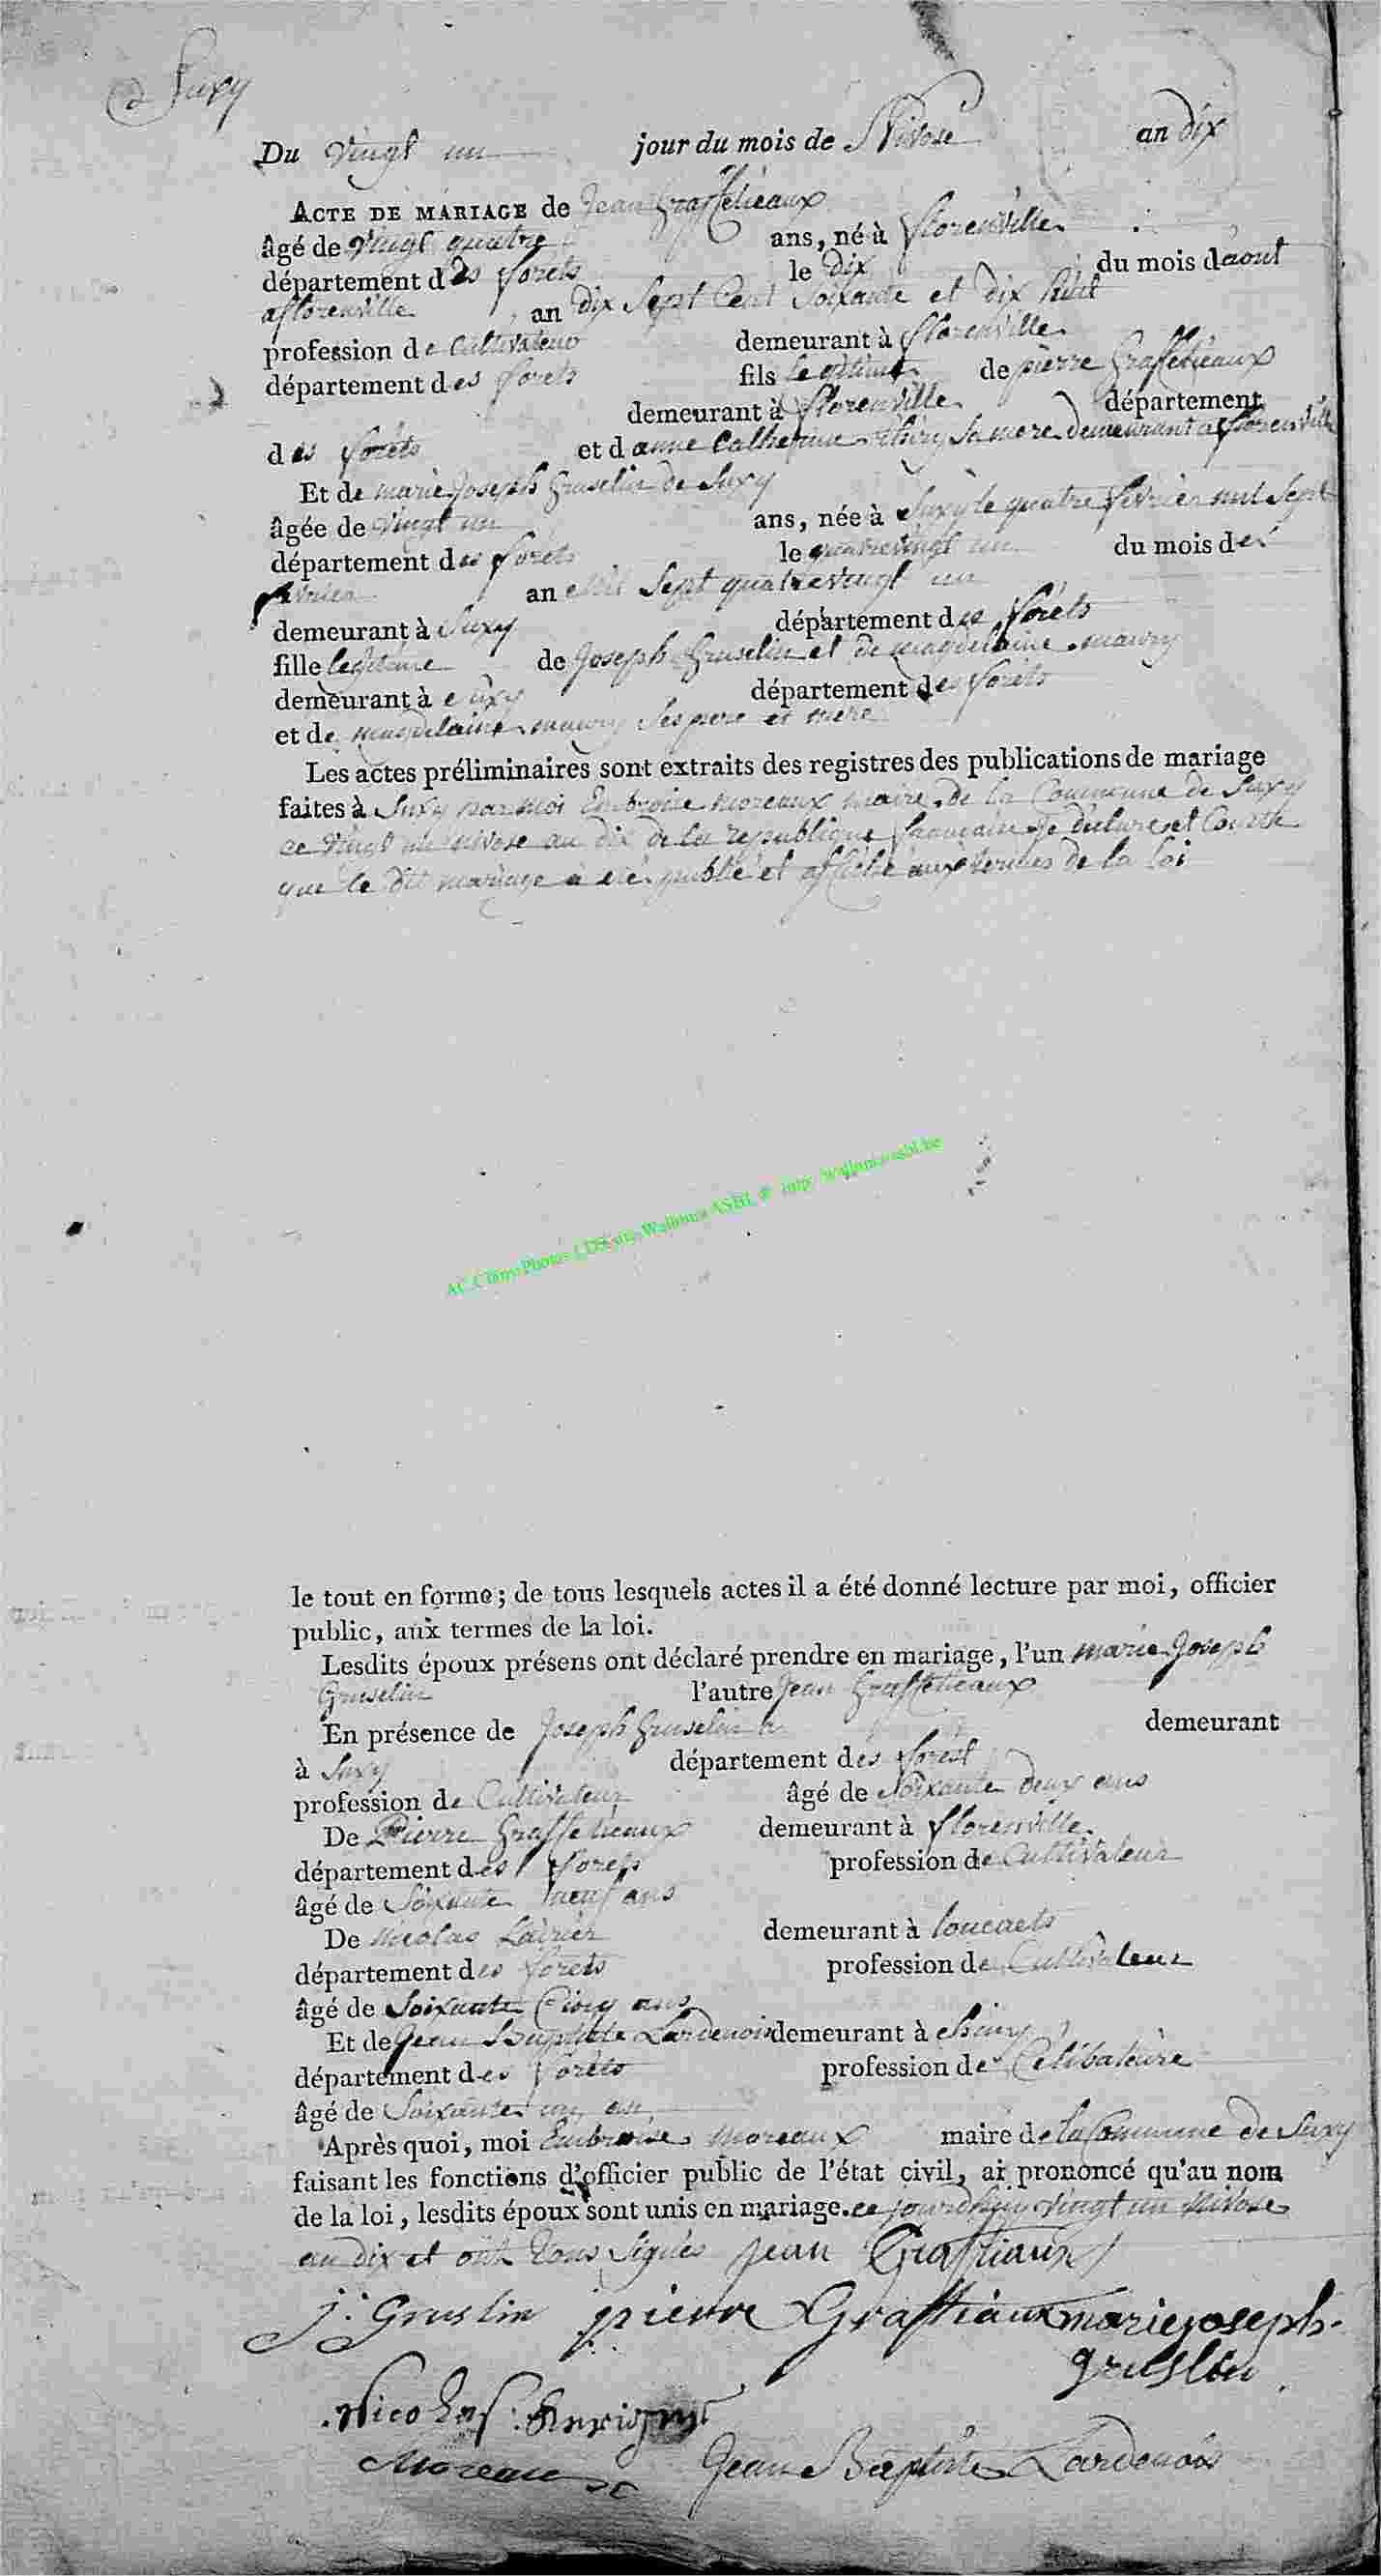 Suxy
Du Vingt un jour du mois de Nivose an dix
ACTE DE MARIAGE de Jean Graffetieaux
âgé de Vingt quatre ans, né à florenville
département des forets le dix du mois daout
a florenville an dix Sept Cent Soixante et dix huit
profession de Cultivateur demeurant à florenville
département des forets fils legitime de pierre Graffetieaux
demeurant à florenville département
des foréts et d anne Catherine thiry Sa mere demeurant a florenville
Et de marie Joseph Gruselin de Suxy
âgée de vingt un ans, née à Suxy le quatre fevrier mil Sept
département des foréts le quatrevingt un du mois de
fevrier an Mil Sept quatrevingt un
demeurant à Suxy département des foréts
fille legitime de Joseph Gruselin et de magdelaine maury
demeurant à Suxy département des foréts
et de magdelaine maury Ses pere et mere
Les actes préliminaires sont extraits des registres des publications de mariage
faites à Suxy par moi Embroise moreaux maire de la Commune de Suxy
ce Vingt un nivose an dix de la republique francaise Je declare et
que le dit mariage à été publié et affiché aux termes de la loi
AC Chiny Photos Wallonia ASBL
le tout en forme; de tous lesquels actes il a été donné lecture par moi, officier
public, aux termes de la loi.
Lesdits époux présens ont déclaré prendre en mariage, l'un marie Joseph
Gruselin l'autre Jean Graffetieaux
En présence de Joseph Gruselin demeurant
à Suxy département dés forest
profession de Cultivateur âgé de Soixante deux ans
De Pierre Graffetieaux demeurant à florenville
département des forets profession de Cultivateur
âgé de Soixante neuf ans
De Nicolas demeurant à
département des forets profession de Cultivateur
âgé de Soixante Cinq ans
Et de Jean Baptiste Lardenois demeurant à
département des foréts profession de Célibataire
âgé de Soixante un an
Après quoi, moi Embroise Moreaux maire de la Commune de Suxy
faisant les fonctions d'officier public de l'état civil, ai prononcé qu'au nom
de la loi, lesdits époux sont unis en mariage. ce jourdhuy vingt un Nivose
an dix et ont tous Signés Jean Graftiaux
J: Gruslin pierre Graftiaux marie joseph
gruslin
Nicolas
Moreaux Jean Baptiste Lardenois